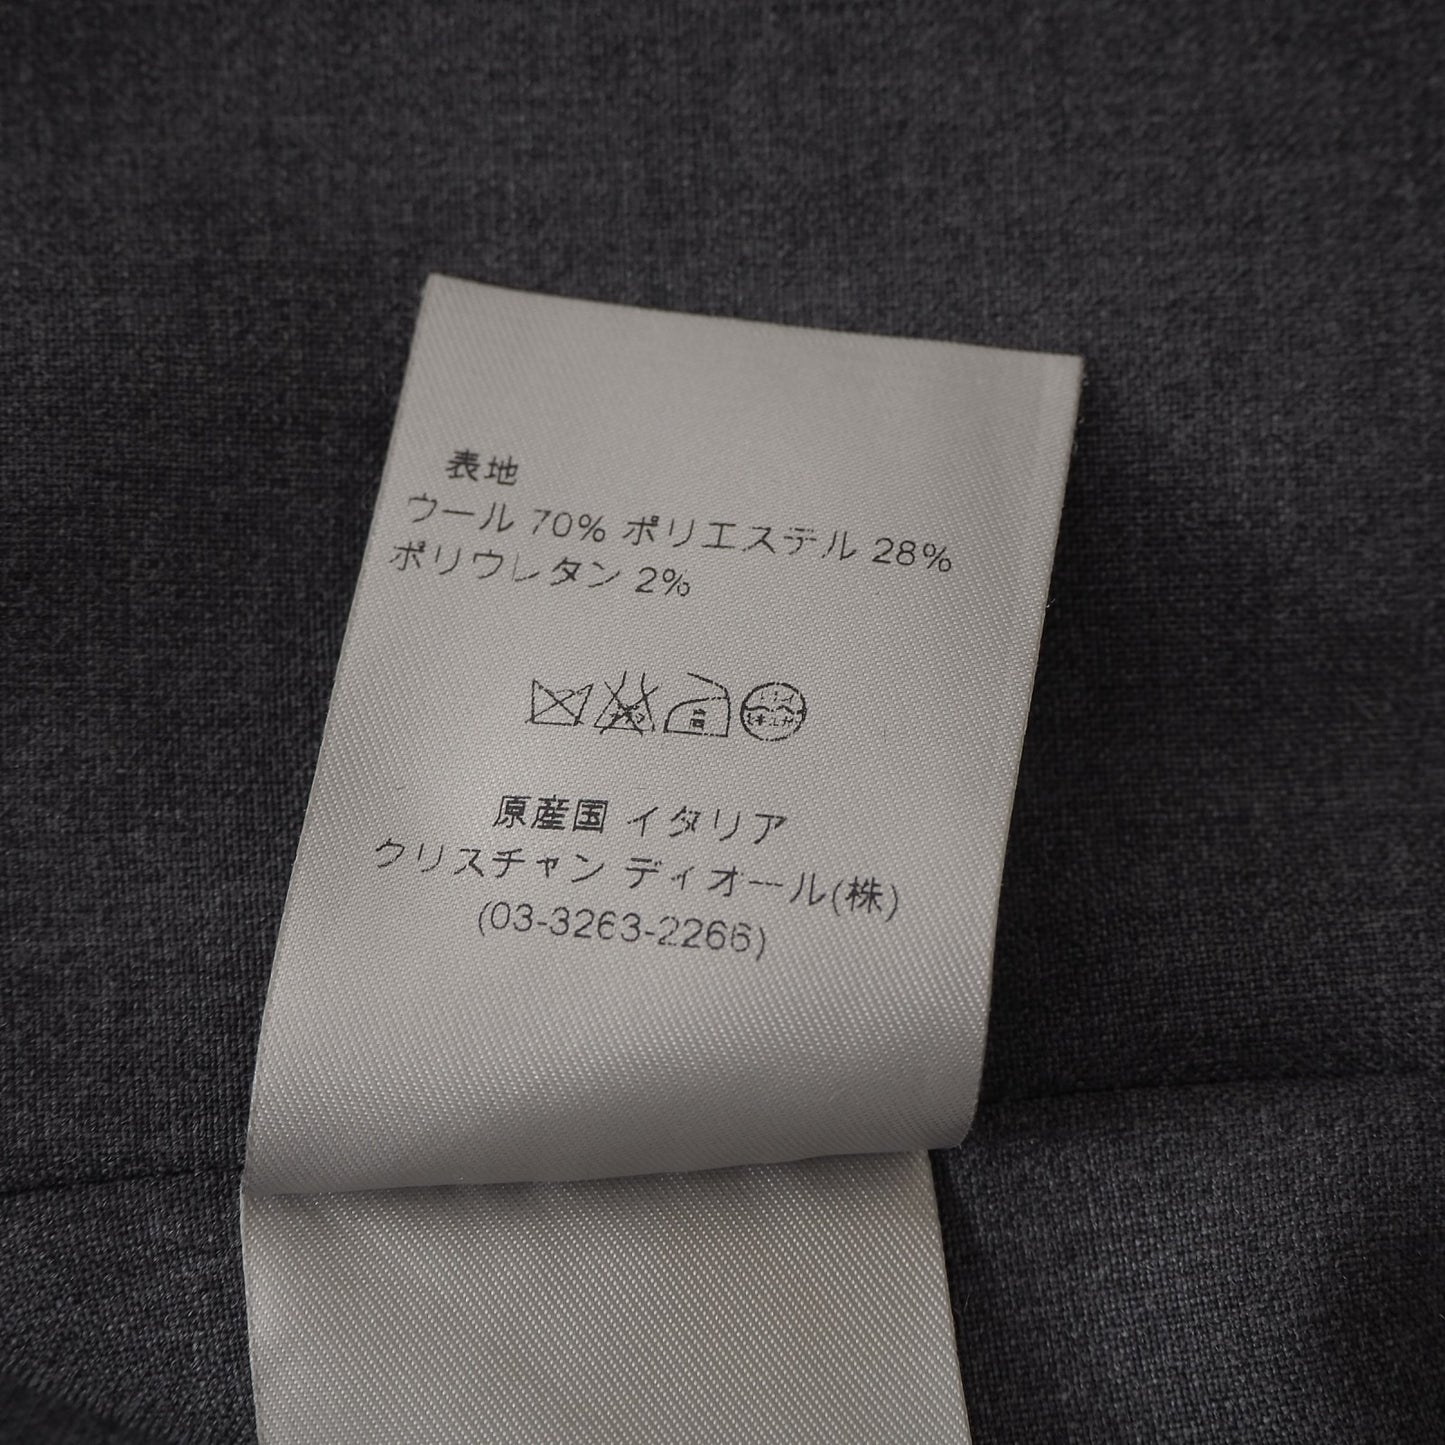 表地
ウール 70% ポリエステル 28%
ポリウレタン 2%
高
原産国 イタリア
クリスチャン ディオール(株)
(03-3263-2266)